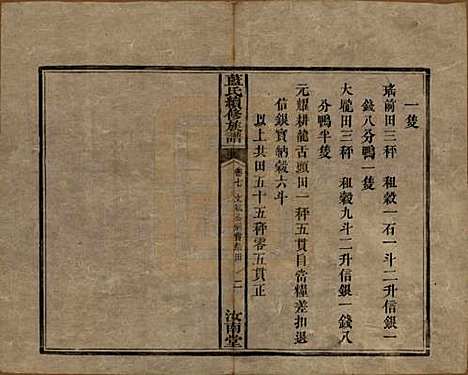 一隻
瑤前田三秤　租穀一石一斗二升信銀一
錢八分鴨一隻
大墘田三秤　租穀九斗二升信銀一錢八
分鴨半隻
元耀耕龍舌頭田一秤五貫目當糧差扣退
信銀實納穀六斗
以上共田五十五秤零五貫正
藍氏續修族譜
卷七
二
汝南堂